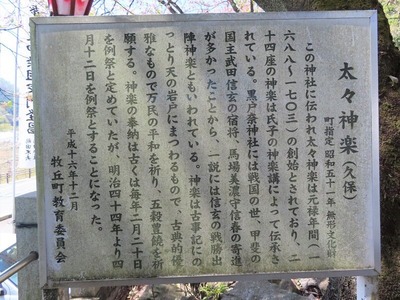 太々神楽（久保）
町指定 昭和五十一年 無形文化財
この神社に伝われ太々神楽は元禄年間（一
六八八～一七〇三）の創始とされており、二
十四座の神楽は氏子の神楽講によって伝承さ
れている。黒戸奈神社には戦国の世、甲斐の
国主武田信玄の宿将 馬場美濃守信春の寄進
が多かったことから、一説には信玄の戦勝出
陣神楽ともいわれている。神楽は古事記にの
っとり天の岩戸にまつわるもので、古典的優
雅なもので万民の平和を祈り、五穀豊饒を祈
願する。神楽の奉納は古くは毎年二月二十日
を例祭と定めていたが、明治四十四年より四
月十二日を例祭とすることになった。
平成十六年十二月
牧丘町教育委員会